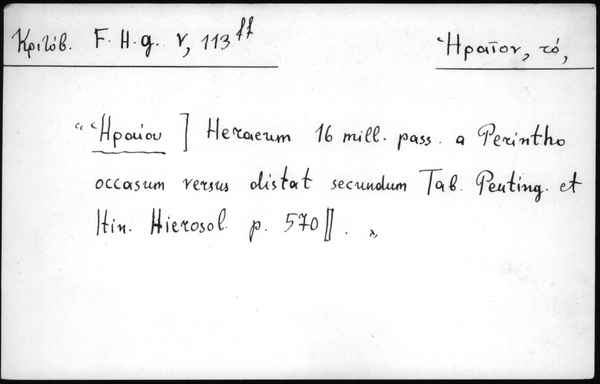 Κριτόβ. F. H. g. V, 113 ff
Ἡραῖον, τό,
"Ἡραίου ] Heraeum 16 mill. pass. a Perintho
occasum versus distat secundum Tab. Peuting. et
Itin. Hierosol. p. 570]]. "